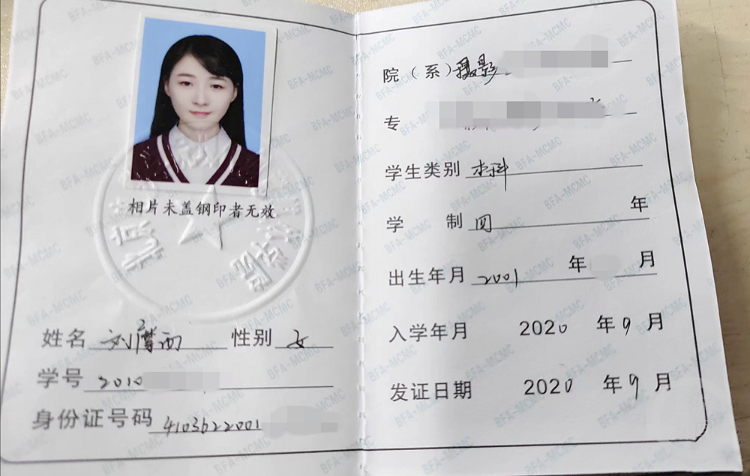 相片未盖钢印者无效
姓名 刘 西 性别 女
学号 2010
身份证号码 4103622001
院(系) 摄影
专
学生类别 本科
学 制 四 年
出生年月 2001 年 月
入学年月 2020 年 9 月
发证日期 2020 年 9 月
BFA-MCMC